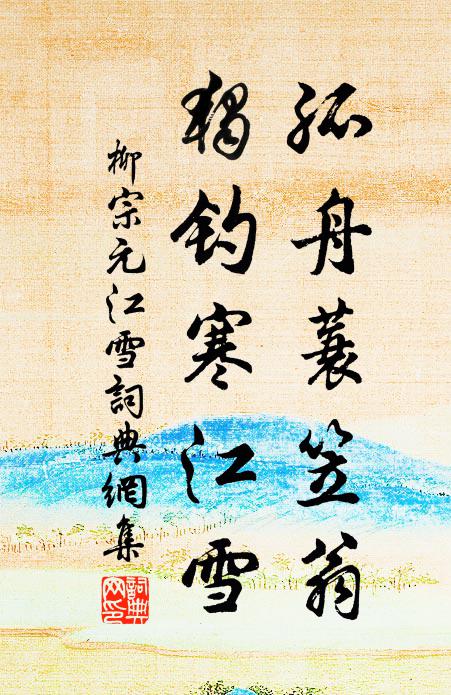 孤舟蓑笠翁
獨釣寒江雪
柳宗元江雪詞典網集
詞典网印